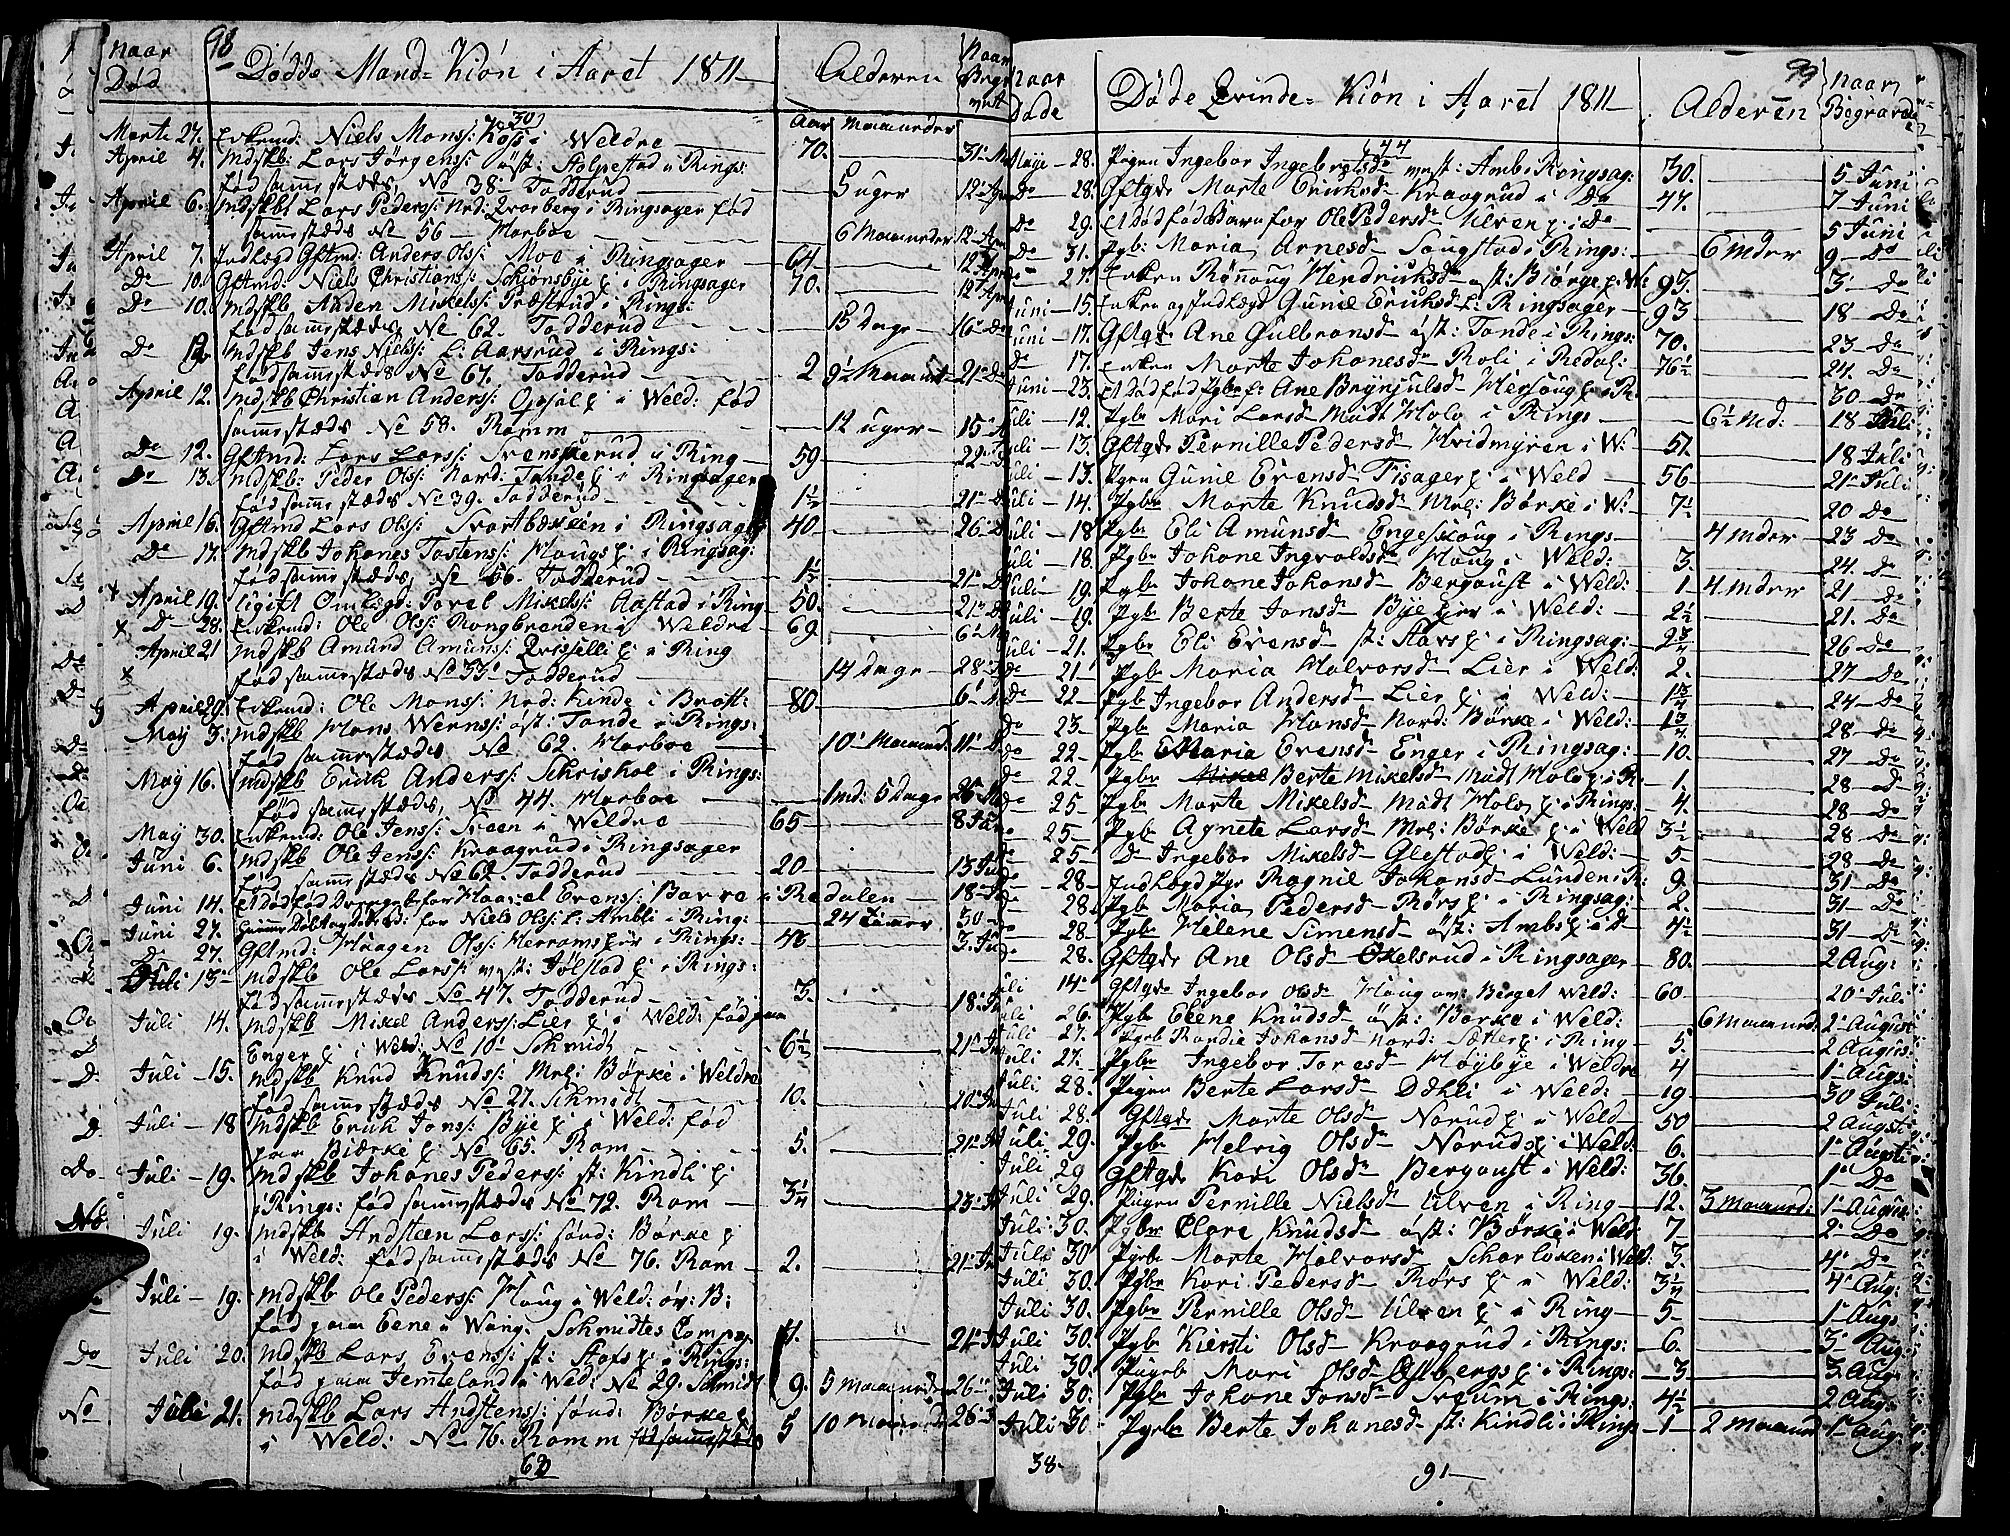 98
Naar Død
Dødde Mand-Kiøn i Aaret 1811
Alderen
Naar
Aar Maaneder
30
Marte 27. Enkemd: Niels Monss: Weldre 70. 31
April 4. Mdskb: Lars Jörgenss: öst: Stolpestad i Rings:
fød samestæds, No 38 Todderud 5 uger 12 Apr
April 6. Mdskbl Lars Pederss: Nrd: Qvarberg i Ringsager fød
samestæds No 56 Morboe 6 Maaneder 12 Apr
April 7. Indlagd Gftmd: Anders Olss: Moe i Ringsager 64 12 Apr
Do 10. Gftmd: Niels Christianss: Schiønsbye i Ringsager 70. 12 Apr
Do 10. Mdskb Anden Mikelss: Træstrud i Rings:
fød samestæds No 62. Todderud 13 Dage 16 Do
Do Mdskb Jens Nielss: l: Aarsrud i Rings:
fød samestæds No 67. Todderud 2 9½ Maaned 21 Do
April 12. Mdskb Christian Anderss: Opsal i Weld: fød
samestæds No 58. Ramm 12 uger 15
Do 12. Gftmd: Lars Larss: Svenskerud i Ring 59 22
Do 13. Mdskb: Peder Olss: Nord: Tande i Ringsager
fød same stæds No 39. Todderud 1½ 21
April 16. Gftmd Lars Olss: Svartbækken i Ringsag 40 26
Do 17. Mdskb Johanes Tostenss: Haugs i Ringsag:
fød samestæds, No 56. Todderud 1½ 21
April 19. Ugift Omligd: Povel Mikelss: Aastad i Ring 50. 21
x Do 28. Enkemd: Ole Olss: Rongbrenden i Weldre 69 6
April 21 Mdskb Amund Amunss: i Ring
x fød samestæds No 33 Todderud 14 Dage 28
April 29. Enkemd: Ole Monss: Nrd: Kinde i Brøtt: 80 6
May 3. Mdskb Hans Wernss: öst: Tande i Rings:
fød samestæds No 62. Morboe 10 Maaned: 11
May 16. Mdskb Erik Anderss: Schrishol i Rings:
fød samestæds, No 44. Morboe 1 md: 5 Dage 25
May 30. Enkemd: Ole Jenss: Sveen i Weldre 65 8
Juni 6. Mdskb Ole Jenss: Kraagrud i Ringsager
fød samestæds No 62. Todderud 20 13
Juni 14. Et død fød Drengeb for Evenss: i Redalen 18
Juni 27. for Niels Olss: l: Ambli i Ring: 24 timer 30
Do 27. Gftmd: Haagen Olss: i Rings: 48 3
Juli 13 Mdskb Ole Larss: vest: Jølstad i Rings:
fød samestæds No 47. Todderud 3. 18
Juli 14. Mdskb Mikel Anderss: Lier i Weld: fød paa
Enger i Weld: No 10 Schmidt 6½ 21
Juli 15. Mdskb Knud Knudss: Mel: Børke i Weldre
fød samestæds No 27. Schmidt 10. 20
Juli 18 Mdskb Erik Jonss: Bye i Weld: fød
paa Biærke No 65. Ram 5. 21
Juli 19. Mdskb Johanes Pederss: st: Kindli
i Rings: fød samestæds No 72. Ram 3¼ 23
Juli 19. Mdskb Andsteen Larss: sønd: Børke
i Weld: fød samestæds No 76. Ram 2. 21
Juli 19. Mdskb Ole Pederss: Haug i Weld: öv: B:
fød paa Eene i Wang. Schmidtes Compag 4. 21
Juli 20. Mdskb Lars Evenss: st: i Rings:
fød paa Jemteland i Wed: No 29. Schmidt 9. 5 Maaneder 26
Juli 21. Mdskb Lars Andstenss: sønd: Børke
i Weld: No 76. Ramm fød samestæds 5 10 Maaneder 26
62
99
Naar døde
Døde Qvinde-Kiøn i Aaret 1811
Alderen
Naar Begravede
644
Maye 28. Pigen Ingebor Ingebretsd vest: Amb: Ringsag: 30. 5 Juni
Do 28. Gftqde Marte Eriksd Kraagrud i Do 47. 7 Juni
Do 29. Et død fød Barn for Ole Pedersd Ulven i Do 5 Juni
Do 31. Pgb: Maria Arnesd Saugstad i Rings: 6 mdr 9 Do
27. Enken Rønnaug Hendriksd st: Biørge 93. 3 Do
Juni 15. Enken og Indlægd Gunil Eriksd l: Ringsager 93 18 Do
Juni 17. Gftqde Ane Gulbransd öst: Tande i Rings: 70. 23 Do
Do 17. Enken Marte Johanesd Roli i Redal: 76½ 24 Do
Juni 23. Et død fød Pgbr l: Ane Brynjulsd Hersoug i R 30 Do
Juli 12. Pgb Mari Larsd Midt Holo i Rings 6½ Md: 18 Juli
Juli 13. Gftqde Pernille Pedersd Hvidmyren i W: 51 18 Juli
Juli 13. Pgen Gunil Evensd Fisager i Weld 56 21 Juli
Juli 14. Pgbr Marte Knudsd Mel: Børke i W: 7½ 20 Do
Juli 18 Pgbr Eli Amunsd Engeskoug i Rings 4 mdr 23 Do
Juli 18. Pgbr Johane Ingvaldsd Haug i Weld: 3. 24 Do
Juli 19. Pgbr Johane Johansd Bergaust i Weld: 1 4 mdr 21 Do
Juli 19. Pgbr Berte Jonsd Bye i Weld: 2½ 21. Do
Juli 21. Pgbr Eli Evensd st: i Ringsag: 2¾ 26 Do
Do 21 Pgbr Maria Halvorsd Lier i Weld: 2. 27 Do
Do 22 Pgb Ingebor Andersd Lier i Weld: 24 Do
Do 23. Pgbr Maria Hansd Nord: Børke i Weld: 28 Do
Do 22 Pgb Maria Evensd Enger i Ringsag: 10. 27 Do
Do 22 Pgbr Mikel Berte Mikelsd Midt Holo i R 1. 28 Do
Do 25 Pgb Marte Mikelsd Midt Holo i Rings: 4. 28 Do
25 Pgbr Agnete Larsd Mel: Børke i Weld 3½ 28 Do
Do 25 Do Ingebor Mikelsd Glestad i Weld: 5 28 Do
Do 28 Indlægd Pgr Ragnil Johansd Lunden i R: 9. 31 Do
Do 28. Pgbr Maria Pedersd Rørs i Ringsag: 2. 31 Do
Do 28. Pgbr Helene Simensd öst: Ambs i Do 4½ 31 Do
Do 28. Gftqde Ane Olsd Øxelsrud i Ringsager 80. 2 Aug:
Juli 14 Gftqde Ingebor Olsd Haug öv: Berget Weld: 60 20 Juli
Juli 26. Pgbr Eene Knudsd öst: Børke i Weld: 6 Maaned: 2 August
Juli 27. Pigeb Randie Johansd Nord: i Ring 5. 2 Augus:
Juli 27. Pgbr Ingebor Toresd Høybye i Weldre 4 1 Augs:
Juli 28. Pigen Berte Larsd Dæhli i Weld: 19 30 Juli
Juli 28. Gftqde Marte Olsd Norud i Weld 50 2 Augsti
Juli 29. Pgbr Helvig Olsd Norud i Weld: 6. 1 Augsti
Juli 29 Gftqde Kari Olsd Bergaust i Weld: 36. 1 Do
Juli 29. Pigen Pernille Nielsd Ulven i Ring 12. 3 Maaned: 1 Augus:
Juli 30. Pgbr Clare Knudsd öst: Børke i Weld 7 2 Do
Juli 30 Pgrb Marte Halvorsd Scharløken i Weld: 3. 4 Do
Juli 30. Pgbr Kari Pedersd Rørs i Weld: 3¼ 4 Aug:
Juli 30. Pgbr Pernille Olsd Ulven i Ring 5 1 Augs
Juli 30. Pgb Kiersti Olsd Kraagrud i Rings: 6. 3 Aug:
Juli 30. Pigeb Mari Olsd Østbergs i Rings: 3 3 Aug:
Juli 30. Pgbr Johane Jonsd Sveum i Rings: 4½ 2 Aug:
Juli 30 Pgrb Berte Johanesd st: Kindli i Rings 1 2 Maaned 1 Aug:
38
91